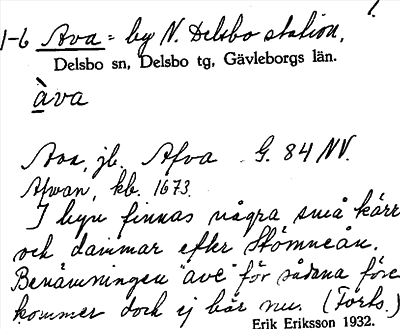 1-6 Ava = by N. Delsbo station,
Delsbo sn, Delsbo tg, Gävleborgs län.
àva
Ava, jb. Afva G. 84 NV.
Afwan, kb. 1673.
I byn finnas några små kärr
och dammar efter Stömneån.
Benämningen "ave" för sådana före
kommer dock ej här nu. (Forts.)
Erik Eriksson 1932.